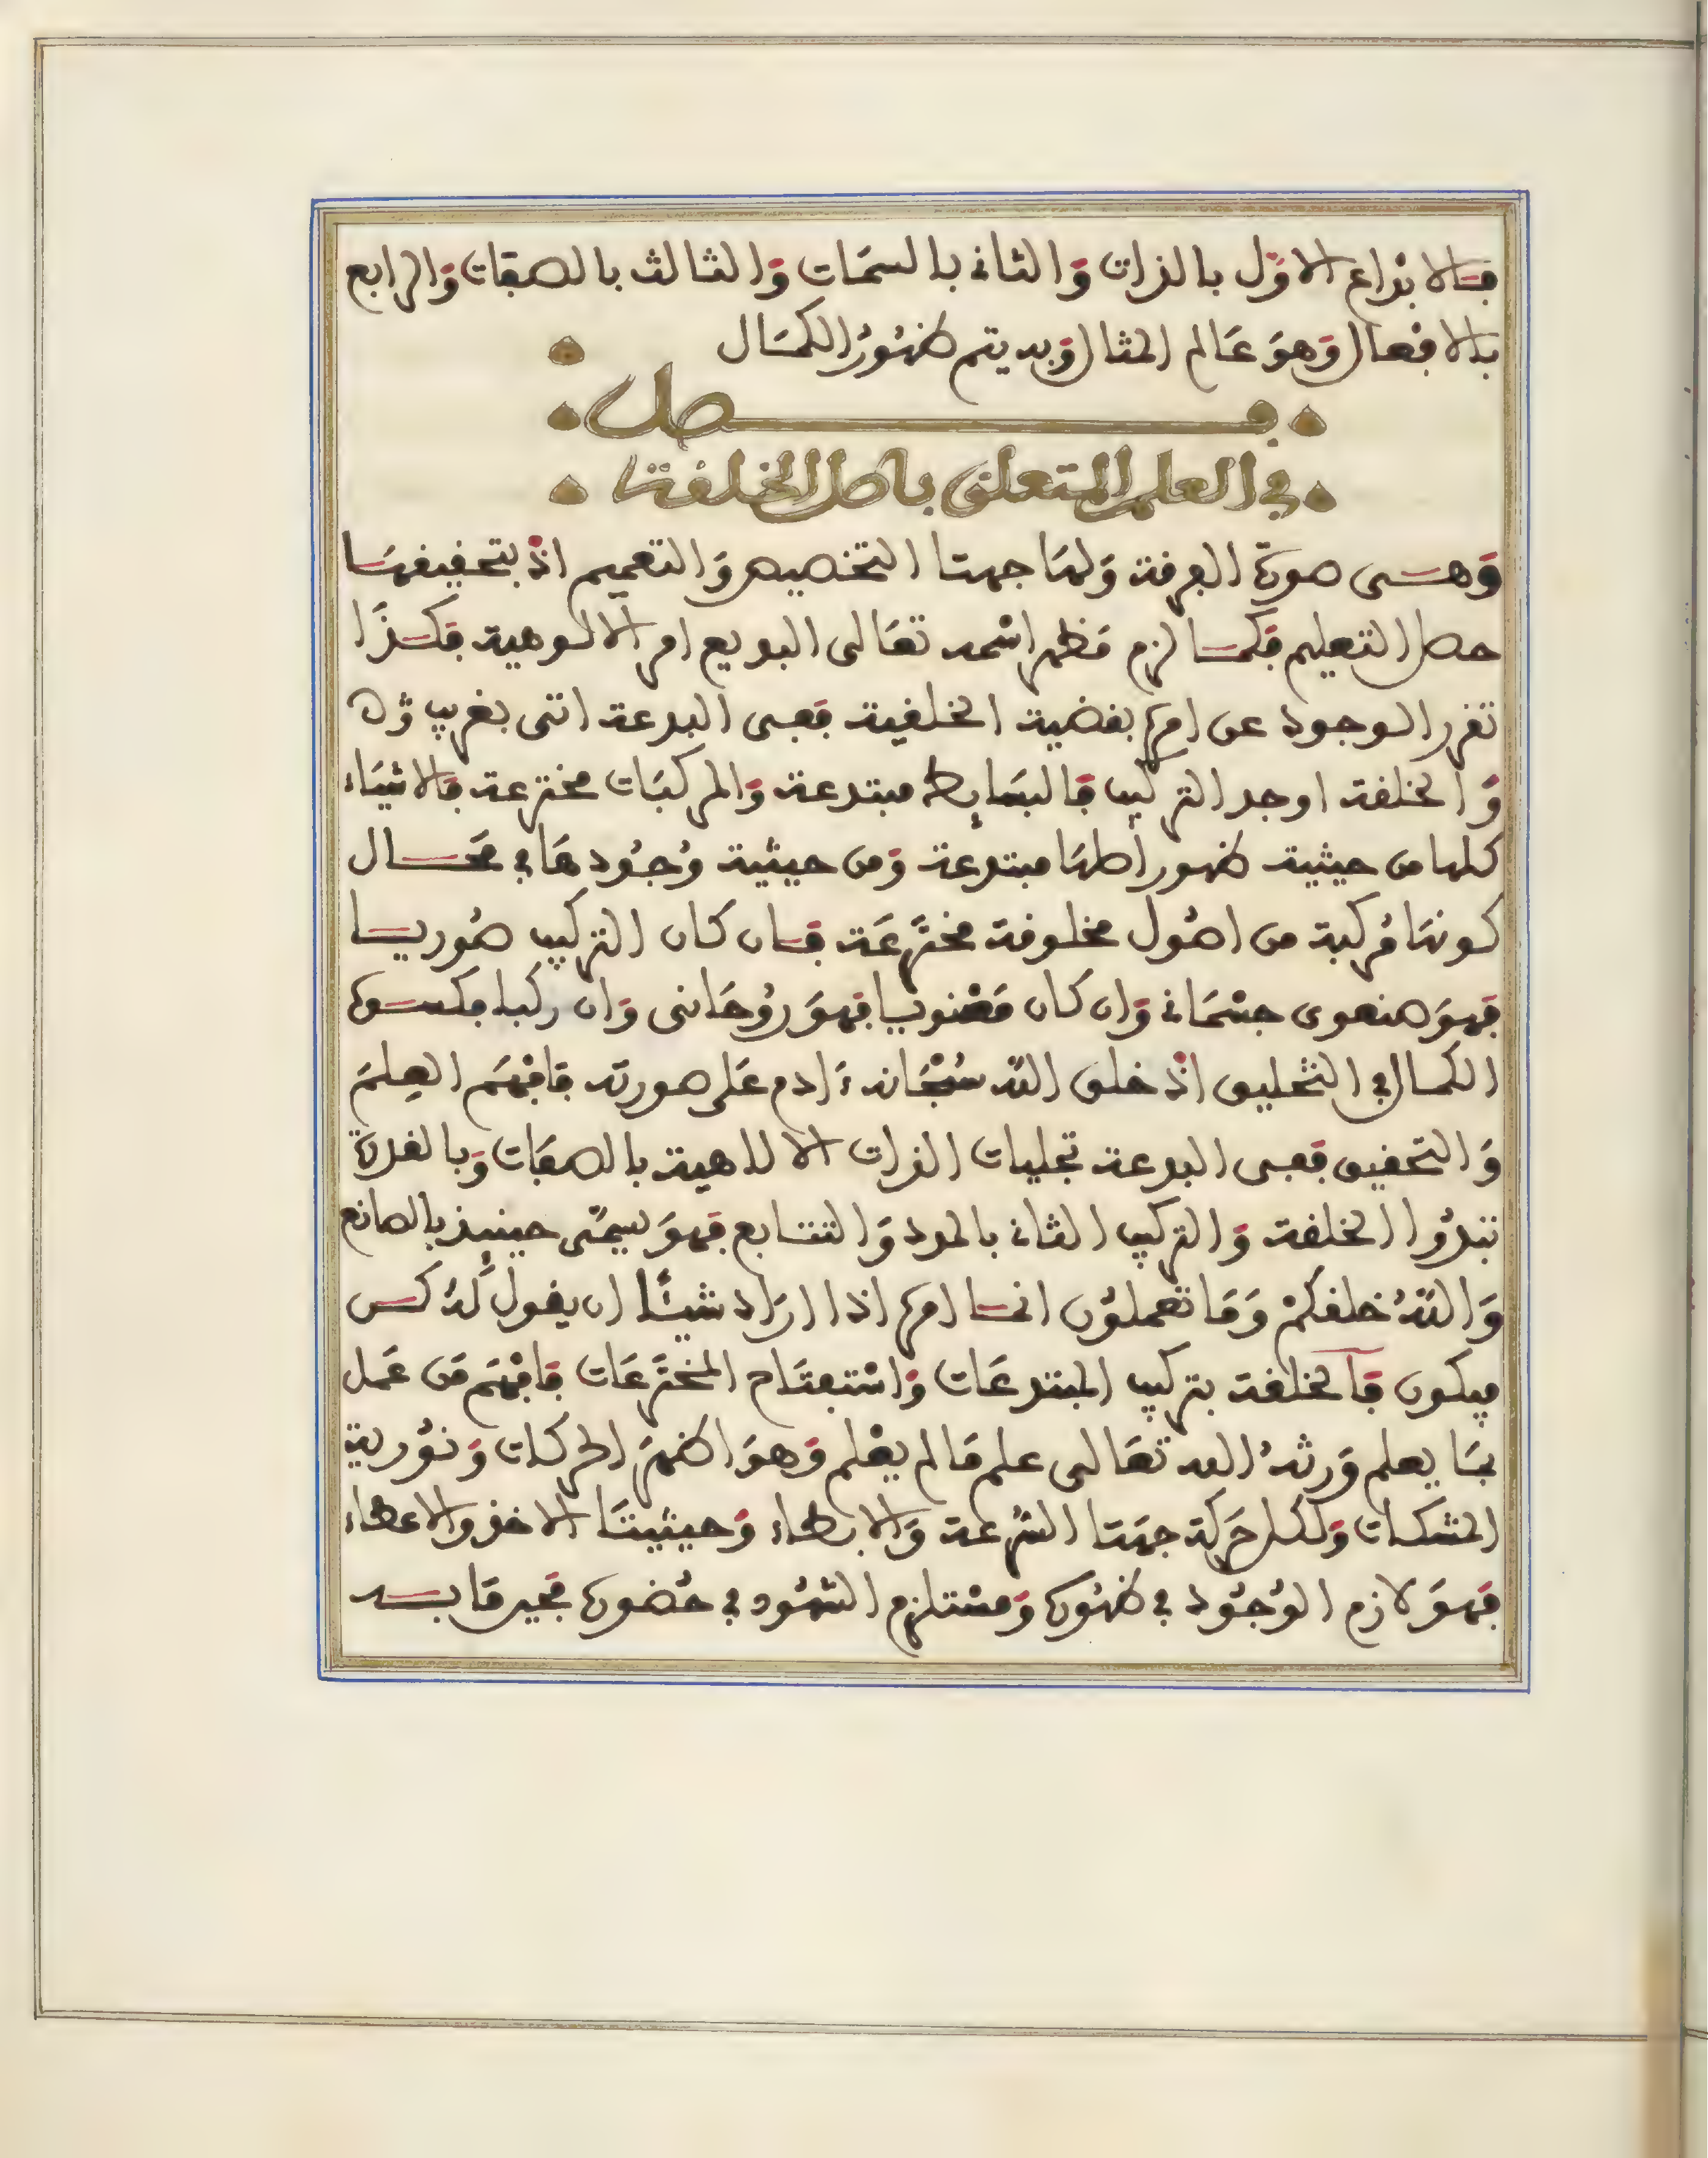 فالابداع الاول بالذات والثاني بالسمات والثالث بالصفات والرابع
بالافعال وهو عالم المثال وبه يتم ظهور الكمال
فصل
في العلم المتعلق باصل الخلقة
وهي صورة المعرفة ولها جهتا التخصيص والتعميم اذ بتحقيقها
حصل التعليم فكما لزم مظهر اسمه تعالى البديع امر الالوهية فكذا
تقرر الوجود عن امره بقضية الخلقية ففي البدعة اتى بغريب
والخلقة اوجد التركيب فالبسايط مبتدعة والمركبات مخترعة فالاشياء
كلها من حيثية ظهور اصلها مبتدعة ومن حيثية وجودها في محال
كونها مركبة من اصول مخلوقة مخترعة فان كان التركيب صوريا
فهو جسماني وان كان معنويا فهو روحاني وان ركبا فكسوة
الكمال في التخليق اذ خلق الله سبحانه ءادم على صورته فافهم العلم
والتحقيق ففي البدعة تجليات الذات الالاهية بالصفات وبالقدرة
تبدوا الخلقة والتركيب الثاني بالمدد والتتابع فهو يسمى حينيذ بالصانع
والله خلقكم وما تعملون انما امره اذا اراد شيئا ان يقول له كن
فيكون فالخلقة بتركيب المبتدعات واستفتاح المخترعات فافهم من عمل
بما يعلم ورثه الله تعالى علم ما لم يعلم وهو اظهر الحركات ونورية
المشكات ولكل حركة جهتا السرعة والابطاء وحيثيتا الاخذ والاعطاء
فهو لازم الوجود في ظهوره ومستلزم الشهود في حضوره فجير ما بسد